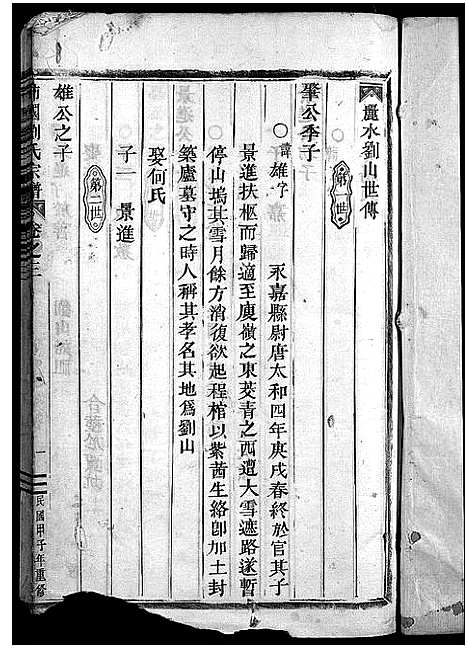 麗水劉山世傳
第一世
肇公季子
諱雄字 永嘉縣尉唐太和四年庚戌春終於官其子
景進扶柩而歸適至庾嶺之東茭青之西遭大雪遮路遂暫
停山塢其雪月餘方消復欲起程棺以紫茜生絡卽加土封
築廬墓守之時人稱其孝名其地爲劉山
娶何氏
子一 景進
第二世
雄公之子
南園劉氏宗譜 卷之三 一 民國甲子年重修